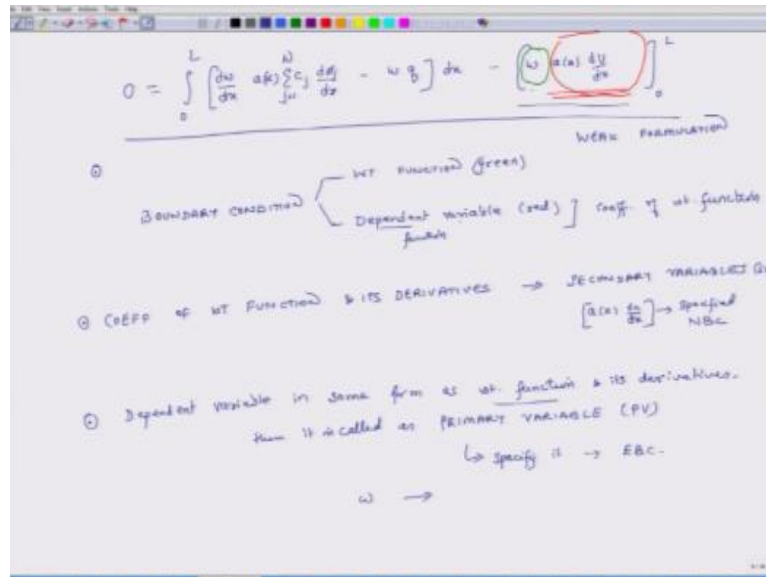 0 = ∫₀ᴸ [ dw/dx a(x) Σⱼ₌₁ᴺ cⱼ dφⱼ/dx − w q ] dx − [ w a(x) du/dx ]₀ᴸ
WEAK FORMULATION
WT FUNCTION (green)
BOUNDARY CONDITION
Dependent variable (red) ] coeff. of wt. function
function
⊙ COEFF OF WT FUNCTION & ITS DERIVATIVES → SECONDARY VARIABLES
[a(x) du/dx] → specified
NBC
⊙ Dependent variable in same form as wt. function & its derivatives.
then it is called as PRIMARY VARIABLE (PV)
↳ specify it → EBC.
w →